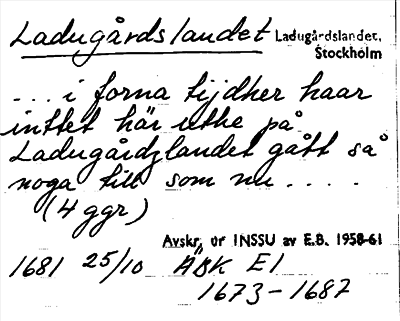 Ladugårdslandet Ladugårdslandet,
Stockholm
... i forna tijdher haar
inttet här uthe på
Ladugårdzlandet gått så
noga till som nu .....
(4 ggr)
Avskr. ur INSSU av E.B. 1958-61
1681 25/10 ÄBK E1
1673-1687